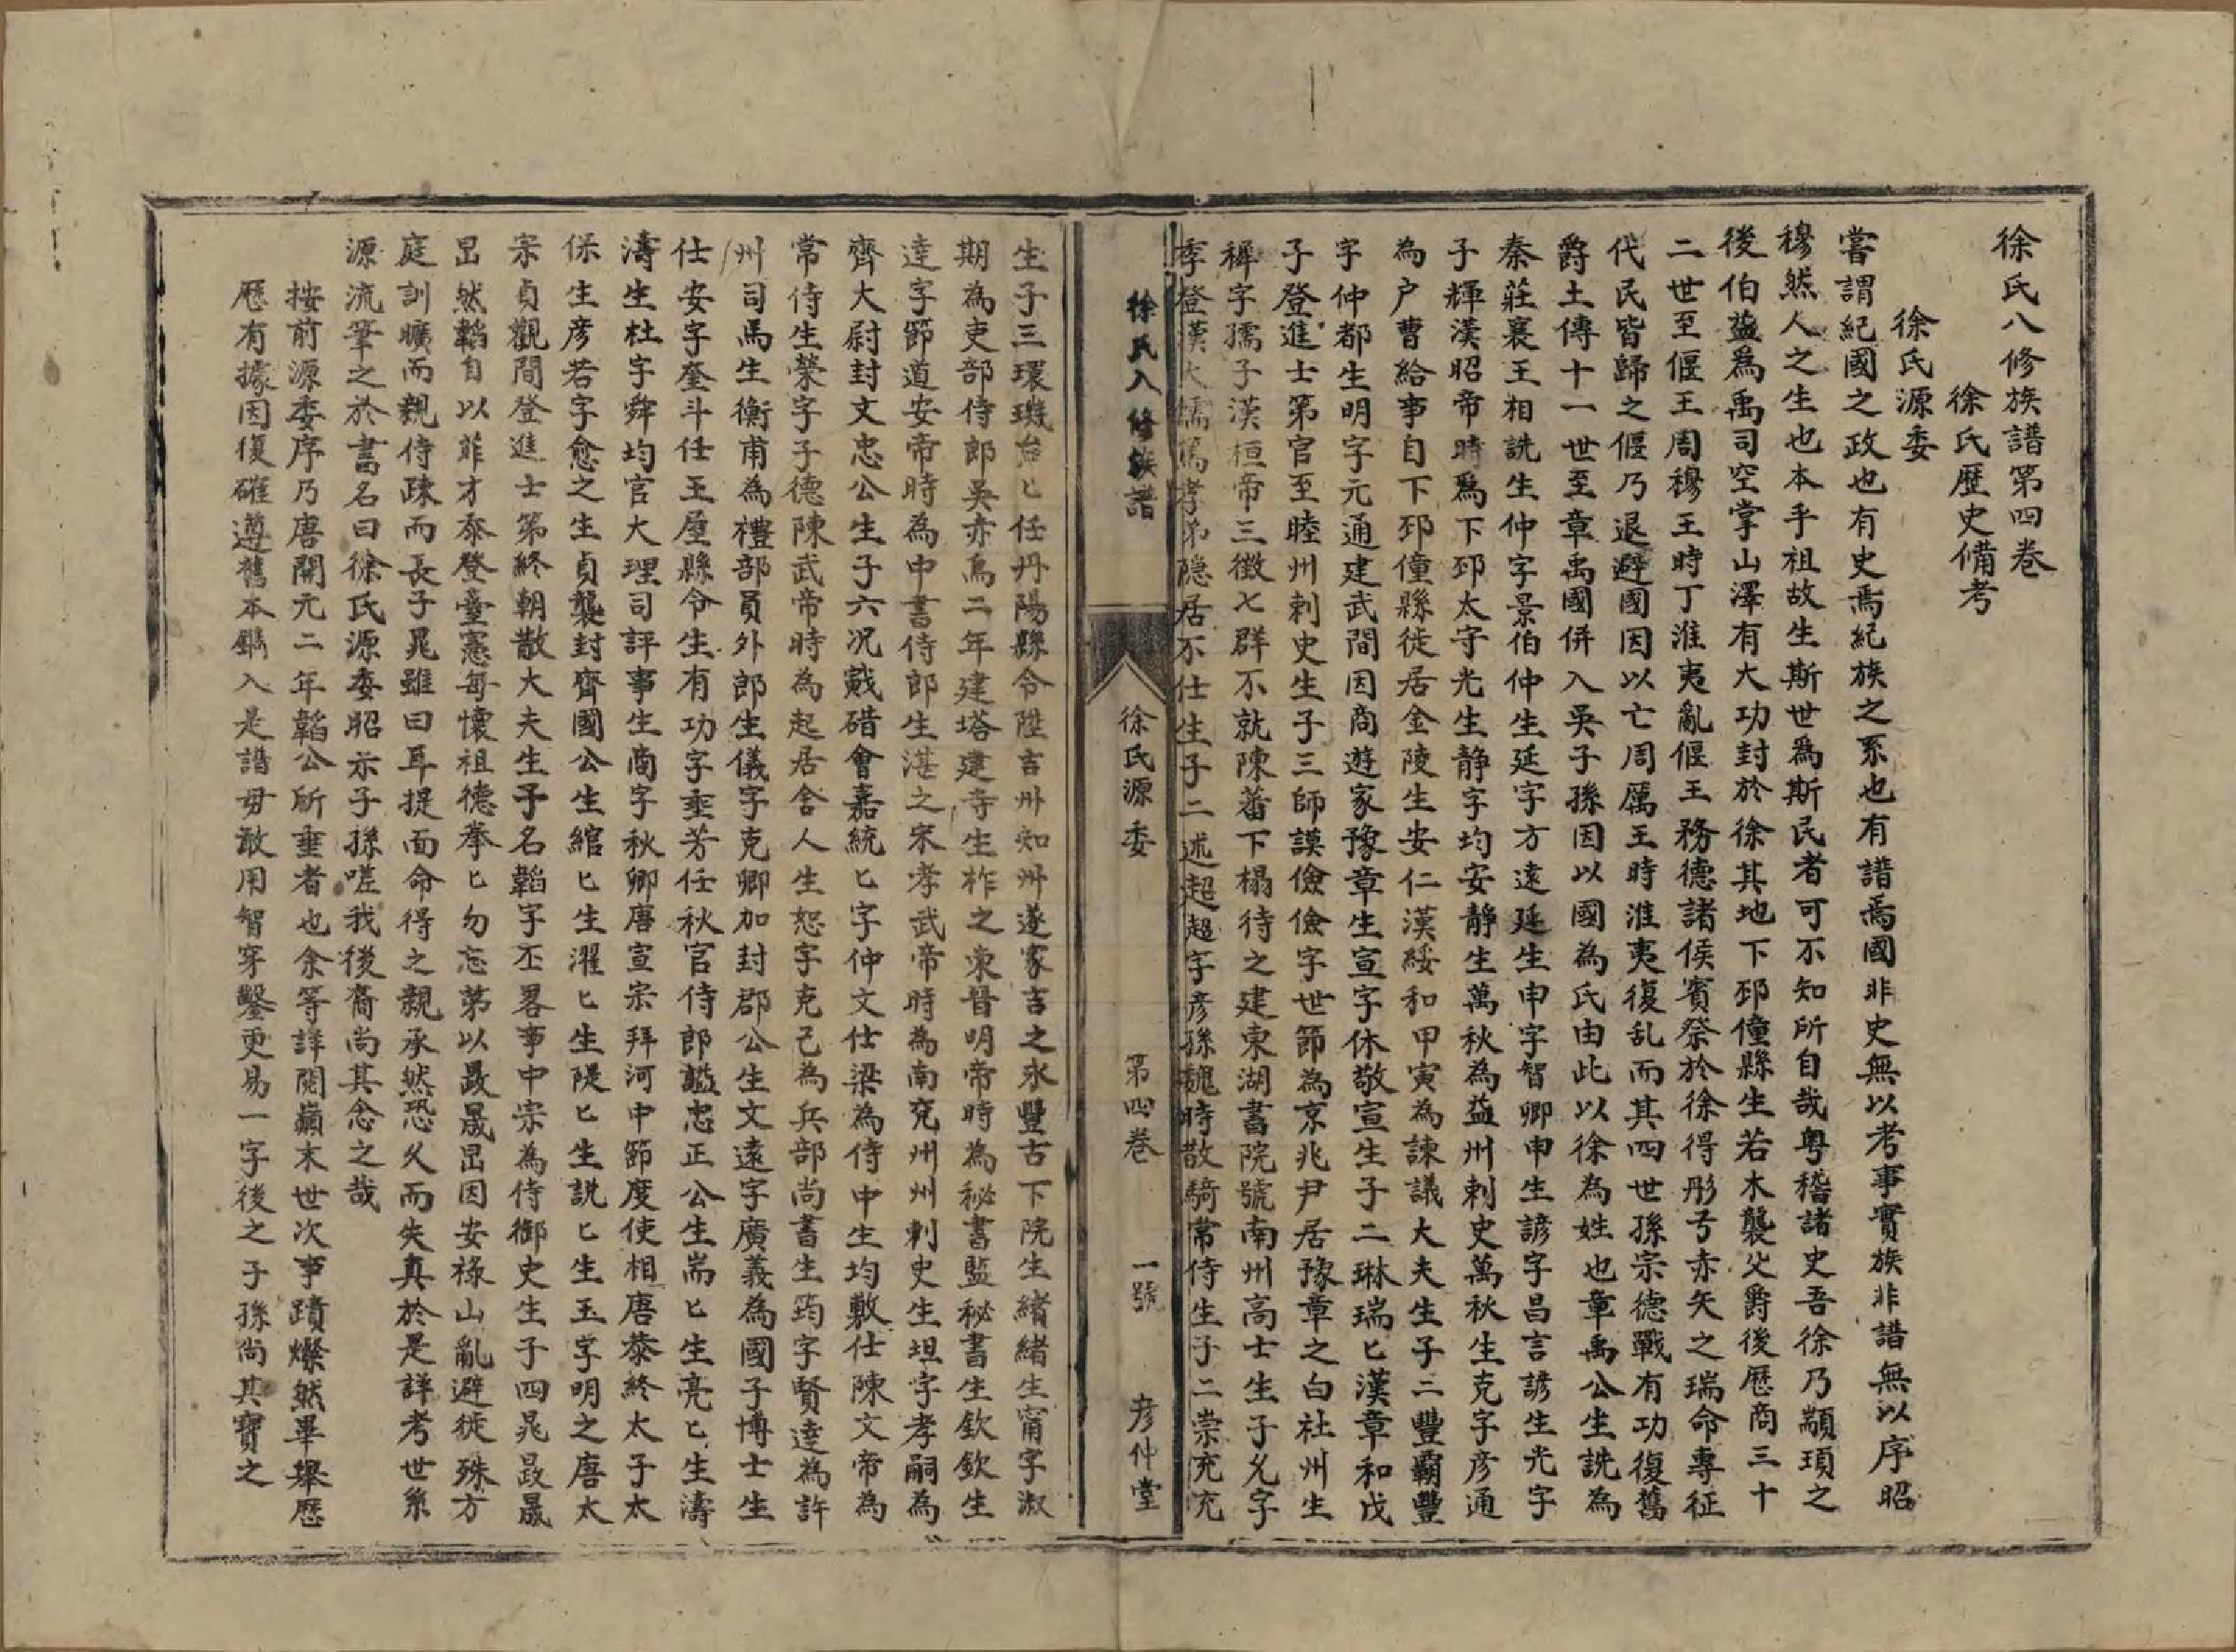 徐氏八修族譜第四卷
徐氏歷史備考
徐氏源委
嘗謂紀國之政也有史焉紀族之系也有譜焉國非史無以考事實族非譜無以序昭
穆然人之生也本乎祖故生斯世爲斯民者可不知所自哉粤稽諸史吾徐乃顓頊之
後伯益爲禹司空掌山澤有大功封於徐其地下邳僮縣生若木襲父爵後歷商三十
二世至偃王周穆王時丁淮夷亂偃王務德諸侯賓祭於徐得彤弓赤矢之瑞命專征
代民皆歸之偃乃退避國因以亡周厲王時淮夷復乱而其四世孫宗德戰有功復舊
爵土傳十一世至章禹國併入吳子孫因以國為氏由此以徐為姓也章禹公生詵為
秦莊襄王相詵生仲字景伯仲生延字方遠延生申字智卿申生諺字昌言諺生光字
子輝漢昭帝時爲下邳太守光生静字均安静生萬秋為益州刺史萬秋生克字彦通
為户曹給事自下邳僮縣徙居金陵生安仁漢綏和甲寅為諫議大夫生子二豐霸豐
字仲都生明字元通建武間因商遊家豫章生宣字休敬宣生子二琳瑞匕漢章和戊
子登進士第官至睦州刺史生子三師謨儉儉字世節為京兆尹居豫章之白社州生
穉字孺子漢桓帝三徵七群不就陳蕃下榻待之建東湖書院號南州高士生子允字
季登漢大儒篤孝弟隱居不仕生子二述超超字彦孫魏時散騎常侍生子二崇充充
徐氏八修族譜
徐氏源委
第四卷
一號
彦仲堂
生子三環璣台匕任丹陽縣令陞吉州知州遂家吉之永豐古下院生緒緒生甯字淑
期為吏部侍郎吳赤烏二年建塔建寺生柞之東晉明帝時為秘書監秘書生欽欽生
達字節道安帝時為中書侍郎生湛之宋孝武帝時為南兗州州刺史生坦字孝嗣為
齊大尉封文忠公生子六况戭碏會嘉統匕字仲文仕梁為侍中生均敷仕陳文帝為
常侍生榮字子德陳武帝時為起居舍人生恕字克己為兵部尚書生筠字賢達為許
州司馬生衡甫為禮部員外郎生儀字克卿加封郡公生文遠字廣義為國子博士生
仕安字奎斗任王屋縣令生有功字垂芳任秋官侍郎諡忠正公生耑匕生亮匕生濤
濤生杜字舜均官大理司評事生商字秋卿唐宣宗拜河中節度使相唐蔡終太子太
保生彦若字愈之生貞襲封齊國公生綰匕生濯匕生隄匕生説匕生玉字明之唐太
宗貞觀間登進士第終朝散大夫生子名韜字丕畧事中宗為侍御史生子四晁㫼晟
昷然韜自以菲才忝登臺憲每懷祖德拳匕勿忘第以㫼晟昷因安祿山亂避徙殊方
庭訓曠而親侍疎而長子晁雖曰耳提面命得之親承然恐久而失真於是詳考世系
源流筆之於書名曰徐氏源委昭示子孫嗟我後裔尚其念之哉
按前源委序乃唐開元二年韜公所垂者也余等詳閲巔末世次事蹟燦然畢舉歷
歷有據因復確遵舊本鐫入是譜毋敢用智穿鑿更易一字後之子孫尚其寶之